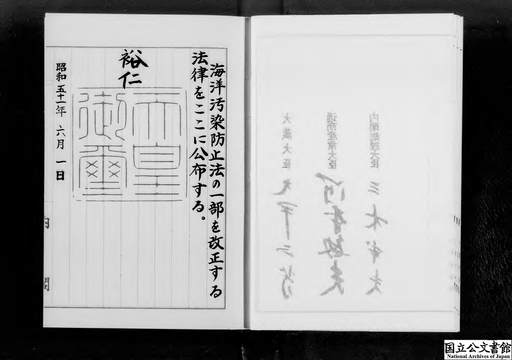 海洋汚染防止法の一部を改正する
法律をここに公布する。
裕仁
天皇
御璽
昭和五十一年 六月 一日
内閣
内閣総理大臣 三木武夫
通商産業大臣 河本敏夫
国立公文書館
National Archives of Japan